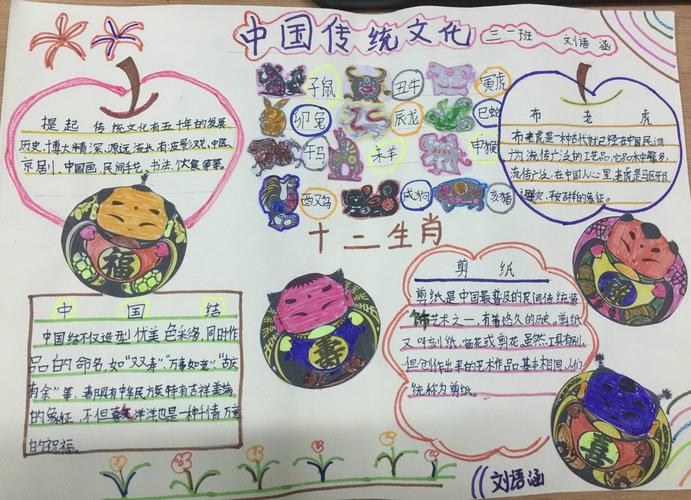 中国传统文化 三二班 刘语涵
子鼠 丑牛 寅虎
卯兔 辰龙 巳蛇
午马 未羊 申猴
酉鸡 戌狗 亥猪
十二生肖
提起 传统文化有五千年的发展
历史,博大精深,源远流长,有皮影戏、中医、
京剧、中国画、民间手艺、书法、饮食等等。
布老虎
布老虎是一种古代就已经在中国民间
流传广泛的工艺品,它品种繁多,
流传广泛,在中国人心里,老虎是驱邪
避灾、平安吉祥的象征。
福
中国结
中国结不仅造型优美、色彩多,同时作
品的命名,如“双寿”,“万事如意”,“吉庆
有余”等,着明有中华民族特有吉祥美满
的象征,不但喜气洋洋,也是一种刊青万富
的祝福。
寿
剪纸
剪纸是中国最普及的民间传统装
饰艺术之一,有着悠久的历史。剪纸
又叫刻纸、窗花或剪花。虽然工具有别,
但创作出来的艺术作品基本相同,人们
统称为剪纸。
喜
刘语涵